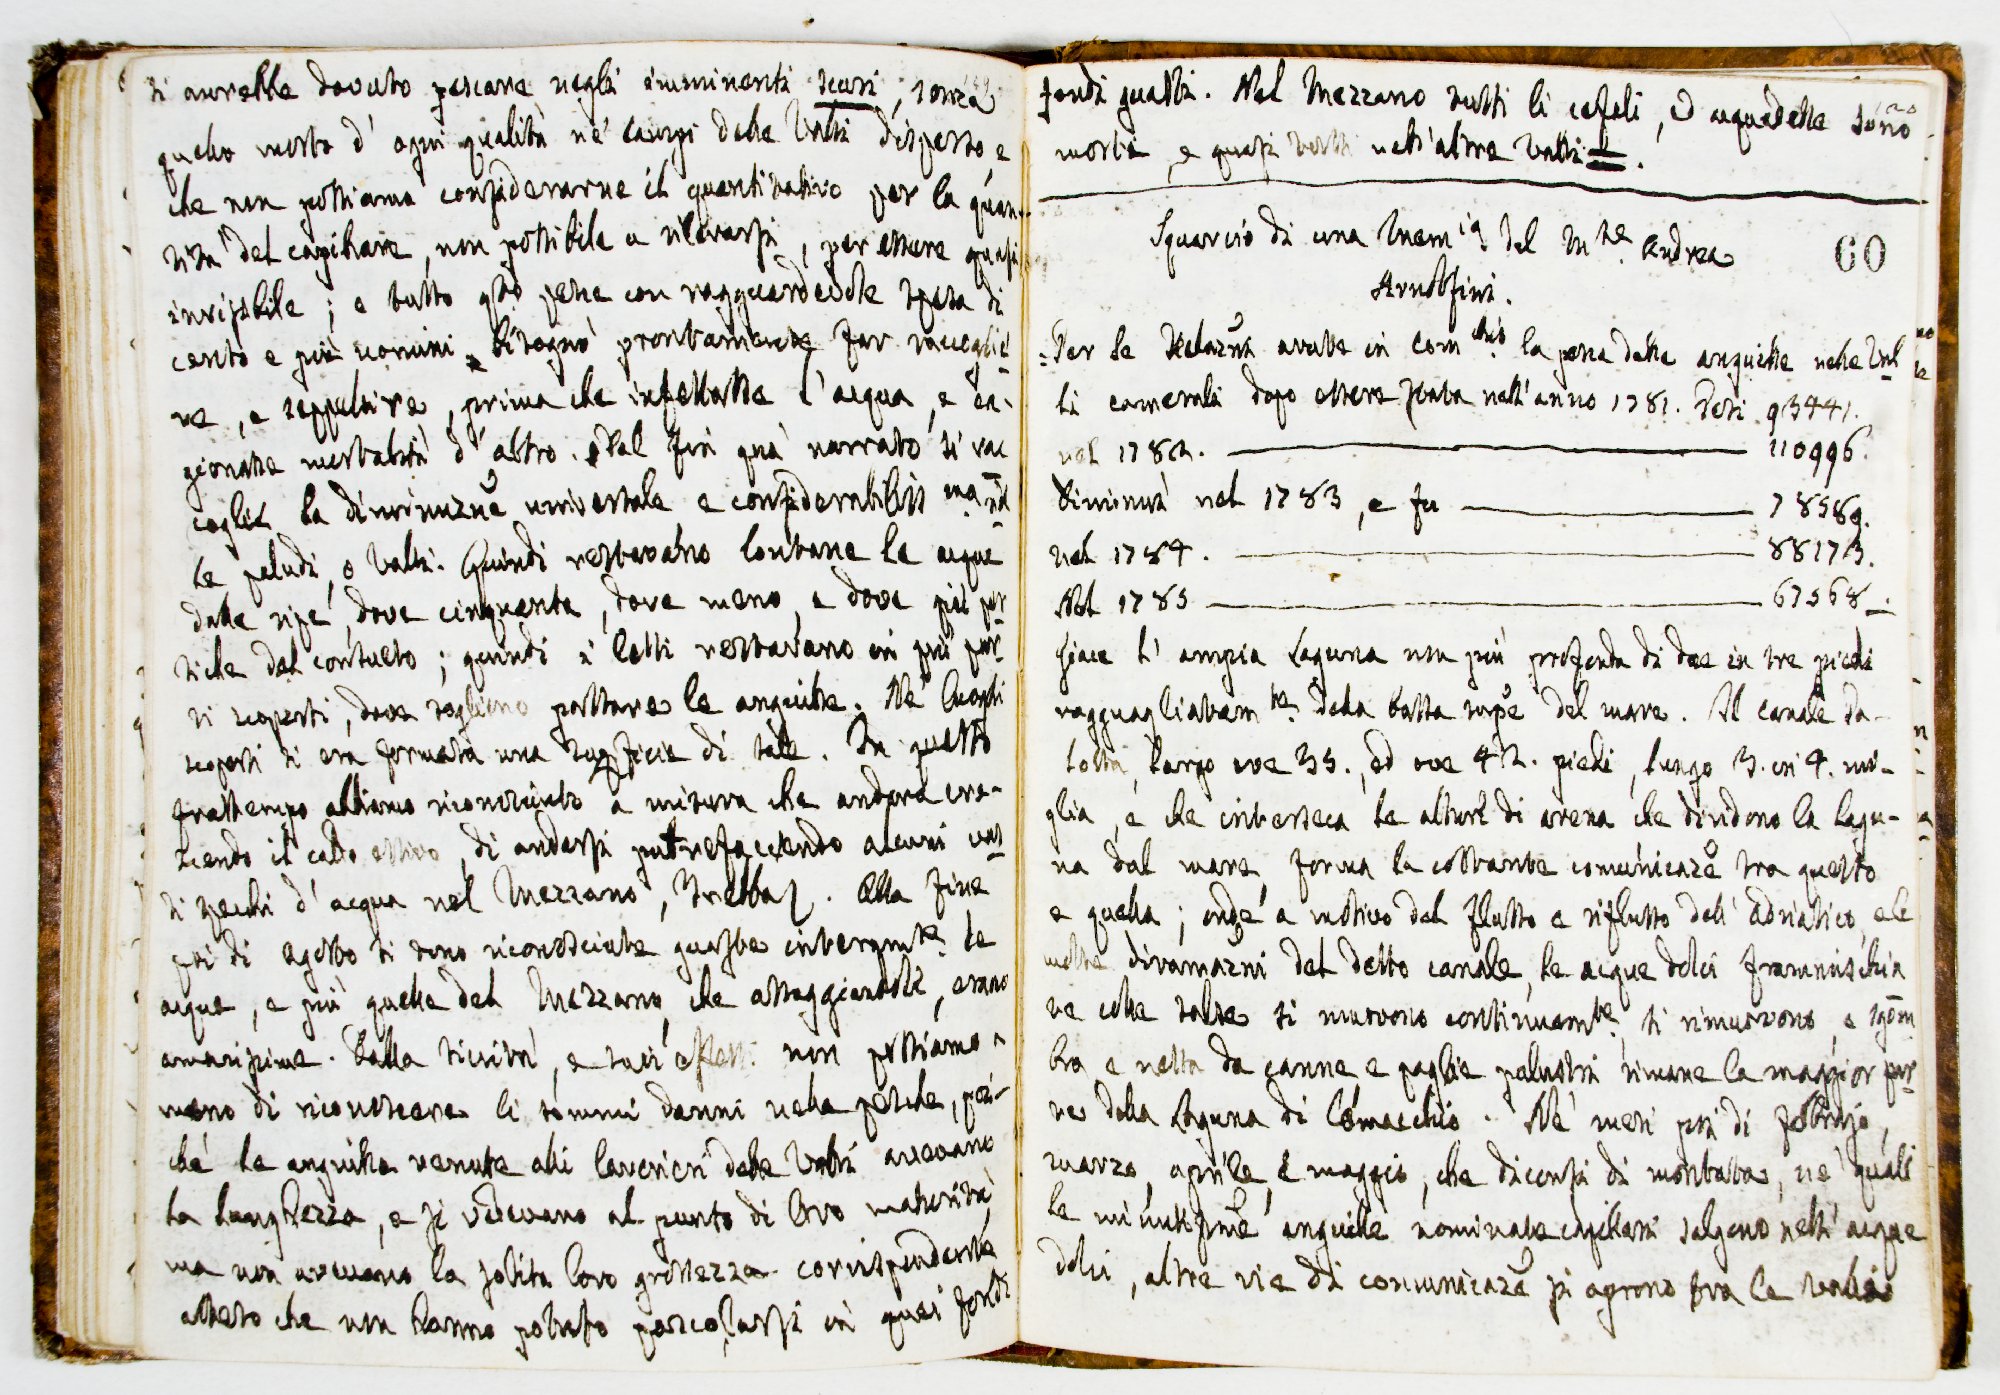 si avrebbe dovuto pescare negli imminenti scuri, senza
quello morto d' ogni qualità ne' campi delle Valli disperso, e
che non possiamo considerarne il quantitativo per la quan-
tità del capillare, non possibile a rilevarsi, per essere quasi
invisibile; e tutto qsto pesce con ragguardevole spesa di
cento e più uomini bisognò prontamente far raccoglie-
re, e seppellire, prima che infettasse l' acqua, e ca-
gionasse mortalità d' altro. Dal fin quà narrato si rac
coglie la diminuzne universale e considerabiliss ma nel
le paludi, o Valli. Quindi restavano lontane le acque
dalle ripe, dove cinquanta, dove meno, e dove più per
tiche dal consueto; quindi i letti restavano in più par
ti scoperti, dove sogliono passare le anguille. Ne' luoghi
scoperti si era formata una superficie di sale. In questo
frattempo abbiamo riconosciuto a misura che andava cre-
scendo il caldo estivo, di andarsi putrefaccendo alcuni vas
ti specchi d' acqua nel Mezzano, Trebba. Alla fine
poi di Agosto si sono riconosciute guaste interamte le
acque, e più quelle del Mezzano, che assaggiandole, erano
amarissime. Dalla siccità, e suoi effetti non possiamo a
meno di riconoscere li sommi danni nella pesche, poi-
chè le anguille venute alli lavorieri delle Valli avevano
la lunghezza, e si vedevano al punto di loro maturità,
ma non avevano la solita loro grossezza corrispondente
atteso che non hanno potuto pascolarsi in quei fondi
fondi guasti. Nel Mezzano tutti li cefali, ed acquadelle sono
morti, e quasi tutti nell' altre Valli =.
Squarcio di una Memia del Mse Andrea
Arnolfini.
60
= Per le Relazni avute in Comchio la pesca delle anguille nelle Val
li camerali dopo essere stata nell' anno 1781. Pesi 93441.
nel 1782. 110996.
diminuì nel 1783, e fu 78589.
nel 1784. 88173.
Nel 1785 67568.
Giace l' ampia Laguna non più profonda di due in tre piedi
ragguagliatamte dalla bassa supe del mare. Il canale da-
lotta, largo ove 35., ed ove 42. piedi, lungo 3. in 4. mi-
glia, e che interseca le alture di arena che dividono la Lagu-
na dal mare, forma la costante comunicaze tra questo
e quella; onde a motivo del flusso e riflusso dell' Adriatico, e le
molte diramazni del detto canale, le acque dolci frammischia
te colle salse si muovono continuamte, si rimuovono, e sgom
bra e netta da canne e paglie palustri rimane la maggior par
te della Laguna di Comacchio. Ne' mesi poi di febbrajo,
marzo, aprile, e maggio, che diconsi di montata, ne' quali
le minutissime anguille nominate capillari salgono nell' acque
dolci, altre vie di comunicaze si aprono tra le valli